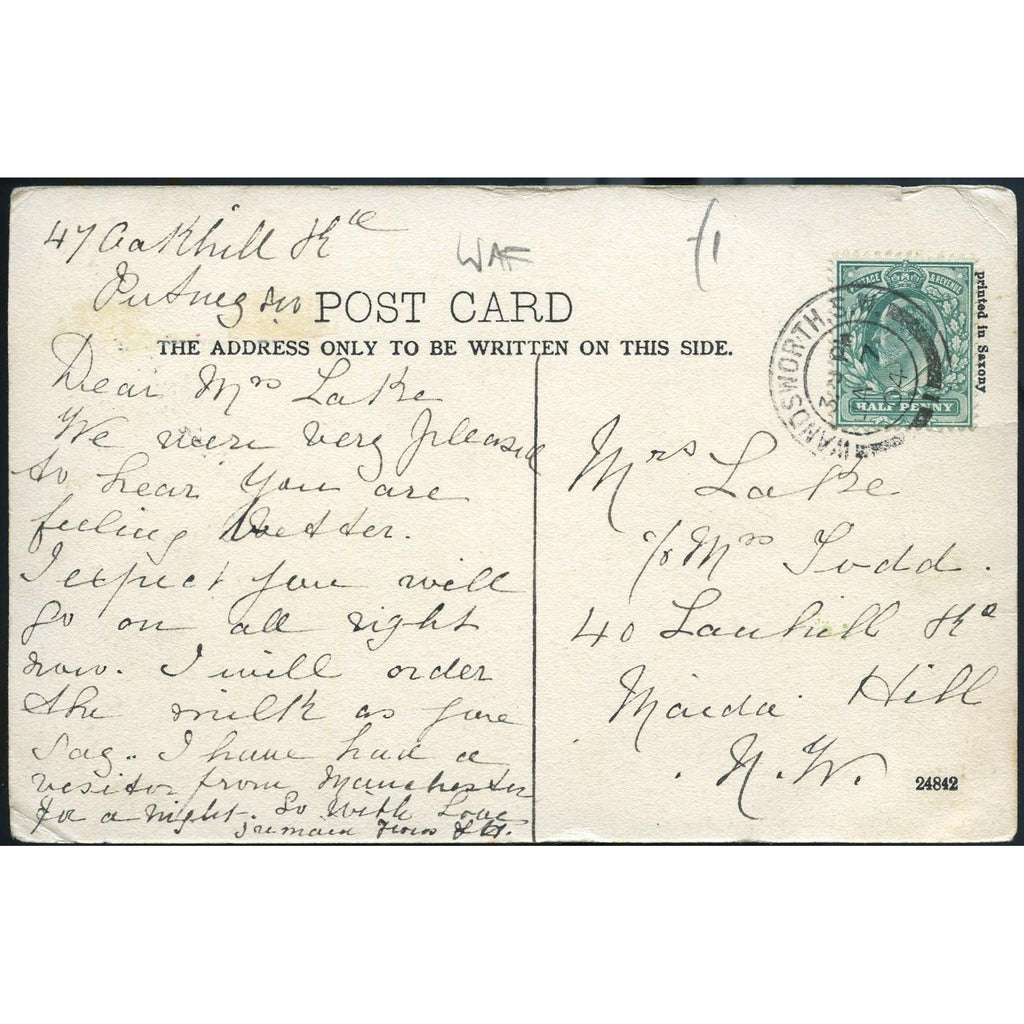 47 Oakhill Rd
Putney SW
WAF
£1
POST CARD
THE ADDRESS ONLY TO BE WRITTEN ON THIS SIDE.
Dear Mrs Lake
We were very pleased
to hear you are
feeling better.
I expect you will
go on all right
now. I will order
the milk as you
say. I have had a
visitor from Manchester
for a night. So with Love
I remain Yours
Mrs Lake
c/o Mrs Todd.
40 Lauhill Rd
Maida Hill
N.W.
24842
printed in Saxony
POSTAGE & REVENUE
HALF PENNY
WANDSWORTH, S.W.
7
04